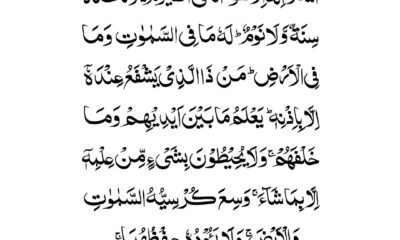 سِنَةٌ وَّلَا نَوْمٌ ؕ لَهٗ مَا فِي السَّمٰوٰتِ وَمَا
فِي الْاَرْضِ ؕ مَنْ ذَا الَّذِيْ يَشْفَعُ عِنْدَهٗۤ
اِلَّا بِاِذْنِهٖ ؕ يَعْلَمُ مَا بَيْنَ اَيْدِيْهِمْ وَمَا
خَلْفَهُمْ ۚ وَلَا يُحِيْطُوْنَ بِشَيْءٍ مِّنْ عِلْمِهٖۤ
اِلَّا بِمَا شَآءَ ۚ وَسِعَ كُرْسِيُّهُ السَّمٰوٰتِ
وَالْاَرْضَ ۚ وَلَا يَـُٔوْدُهٗ حِفْظُهُمَا ۚ